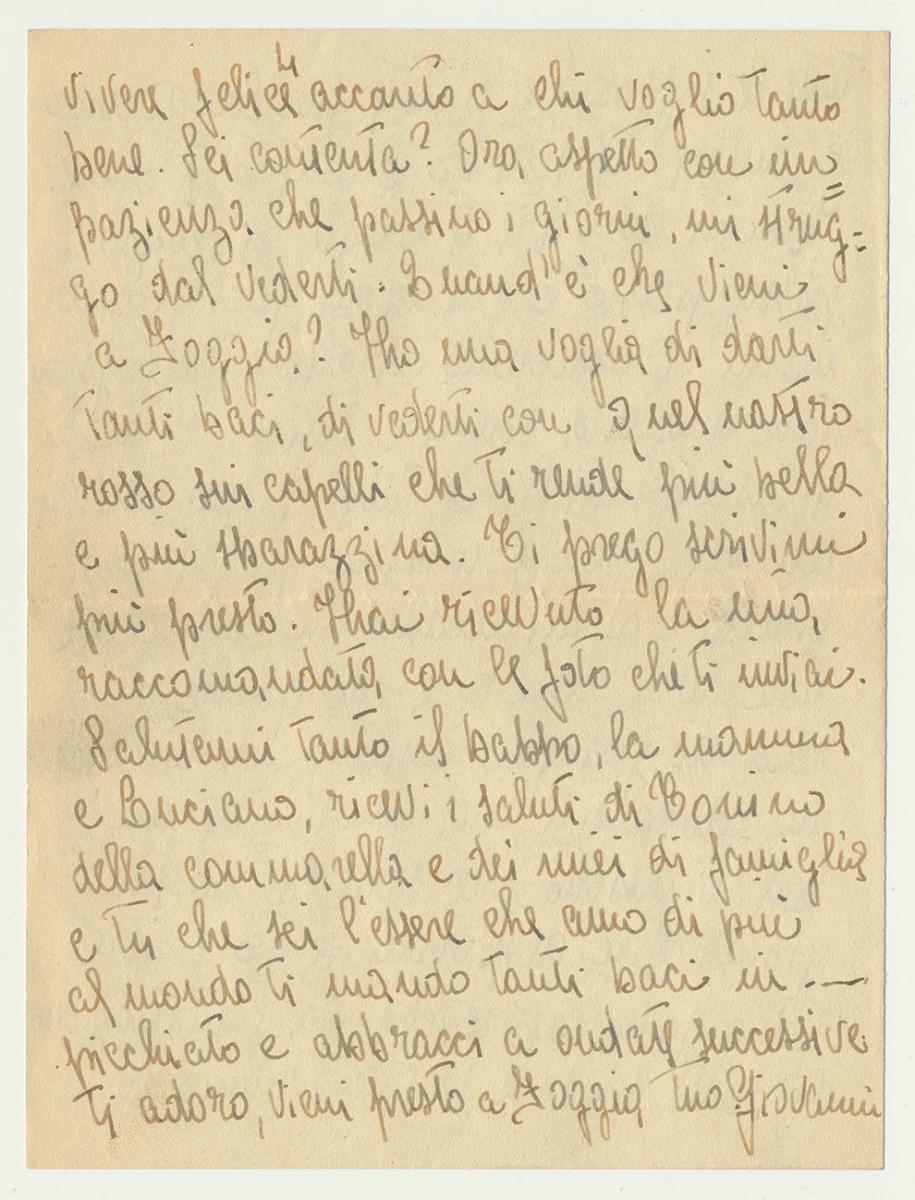 vivere felice accanto a chi voglio tanto
bene. Sei contenta? Ora aspetto con im=
pazienza che passino i giorni, mi strug=
go dal vederti. Quand'è che vieni
a Foggia? Tho una voglia di darti
tanti baci, di vederti con quel nastro
rosso sui capelli che ti rende più bella
e più sbarazzina. Ti prego scrivimi
più presto. Thai ricevuto la mia
raccomandata con le foto che ti inviai.
Salutami tanto il babbo, la mamma
e Luciano, ricevi i saluti di Tonino
della commarella e dei miei di famiglia
e tu che sei l'essere che amo di più
al mondo ti mando tanti baci in .—
picchiato e abbracci a ondate successive
ti adoro, vieni presto a Foggia tuo Giovanni